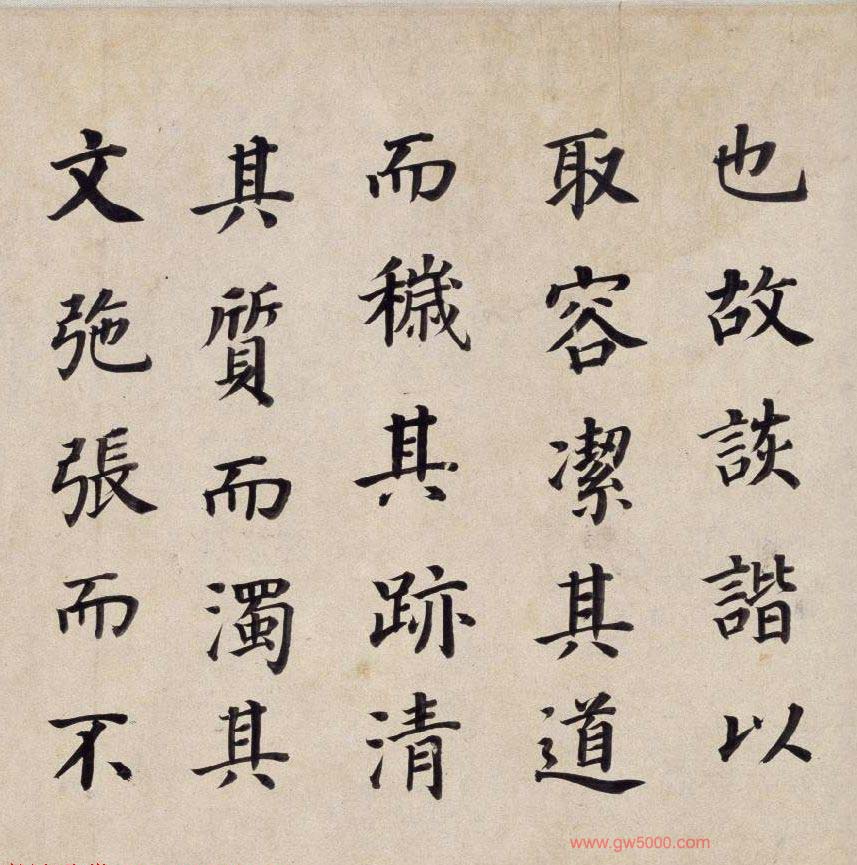 也故談諧以
取容潔其道
而穢其跡清
其質而濁其
文弛張而不
www.gw5000.com